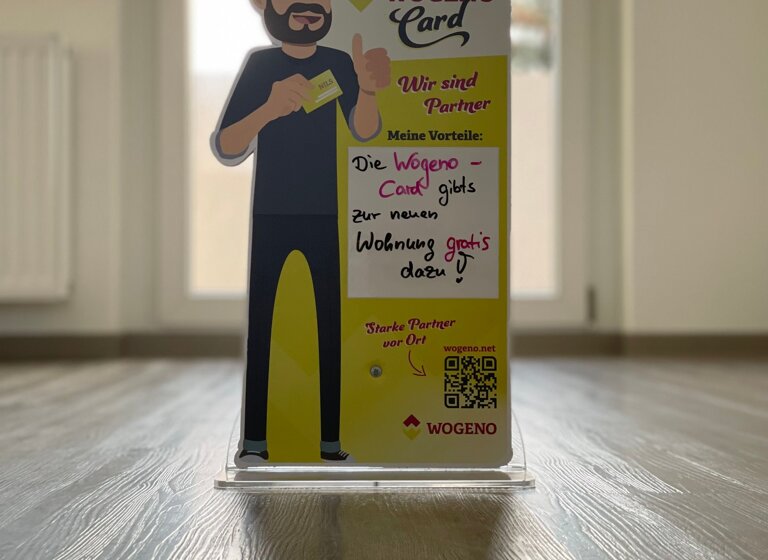 WOGENO
Card
NILS
Wir sind
Partner
Meine Vorteile:
Die Wogeno -
Card gibts
zur neuen
Wohnung gratis
dazu !
Starke Partner
vor Ort
wogeno.net
WOGENO